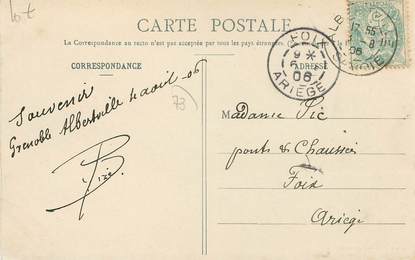 lot
CARTE POSTALE
La Correspondance au recto n'est pas acceptée par tous les pays étrangers.
CORRESPONDANCE
ADRESSE
FOIX
9
06
ARIEGE
8
06
SAVOIE
Souvenir
Grenoble Albertville 4 avril - 06
73
Madame Pic
ponts & Chaussées
Foix
Ariège